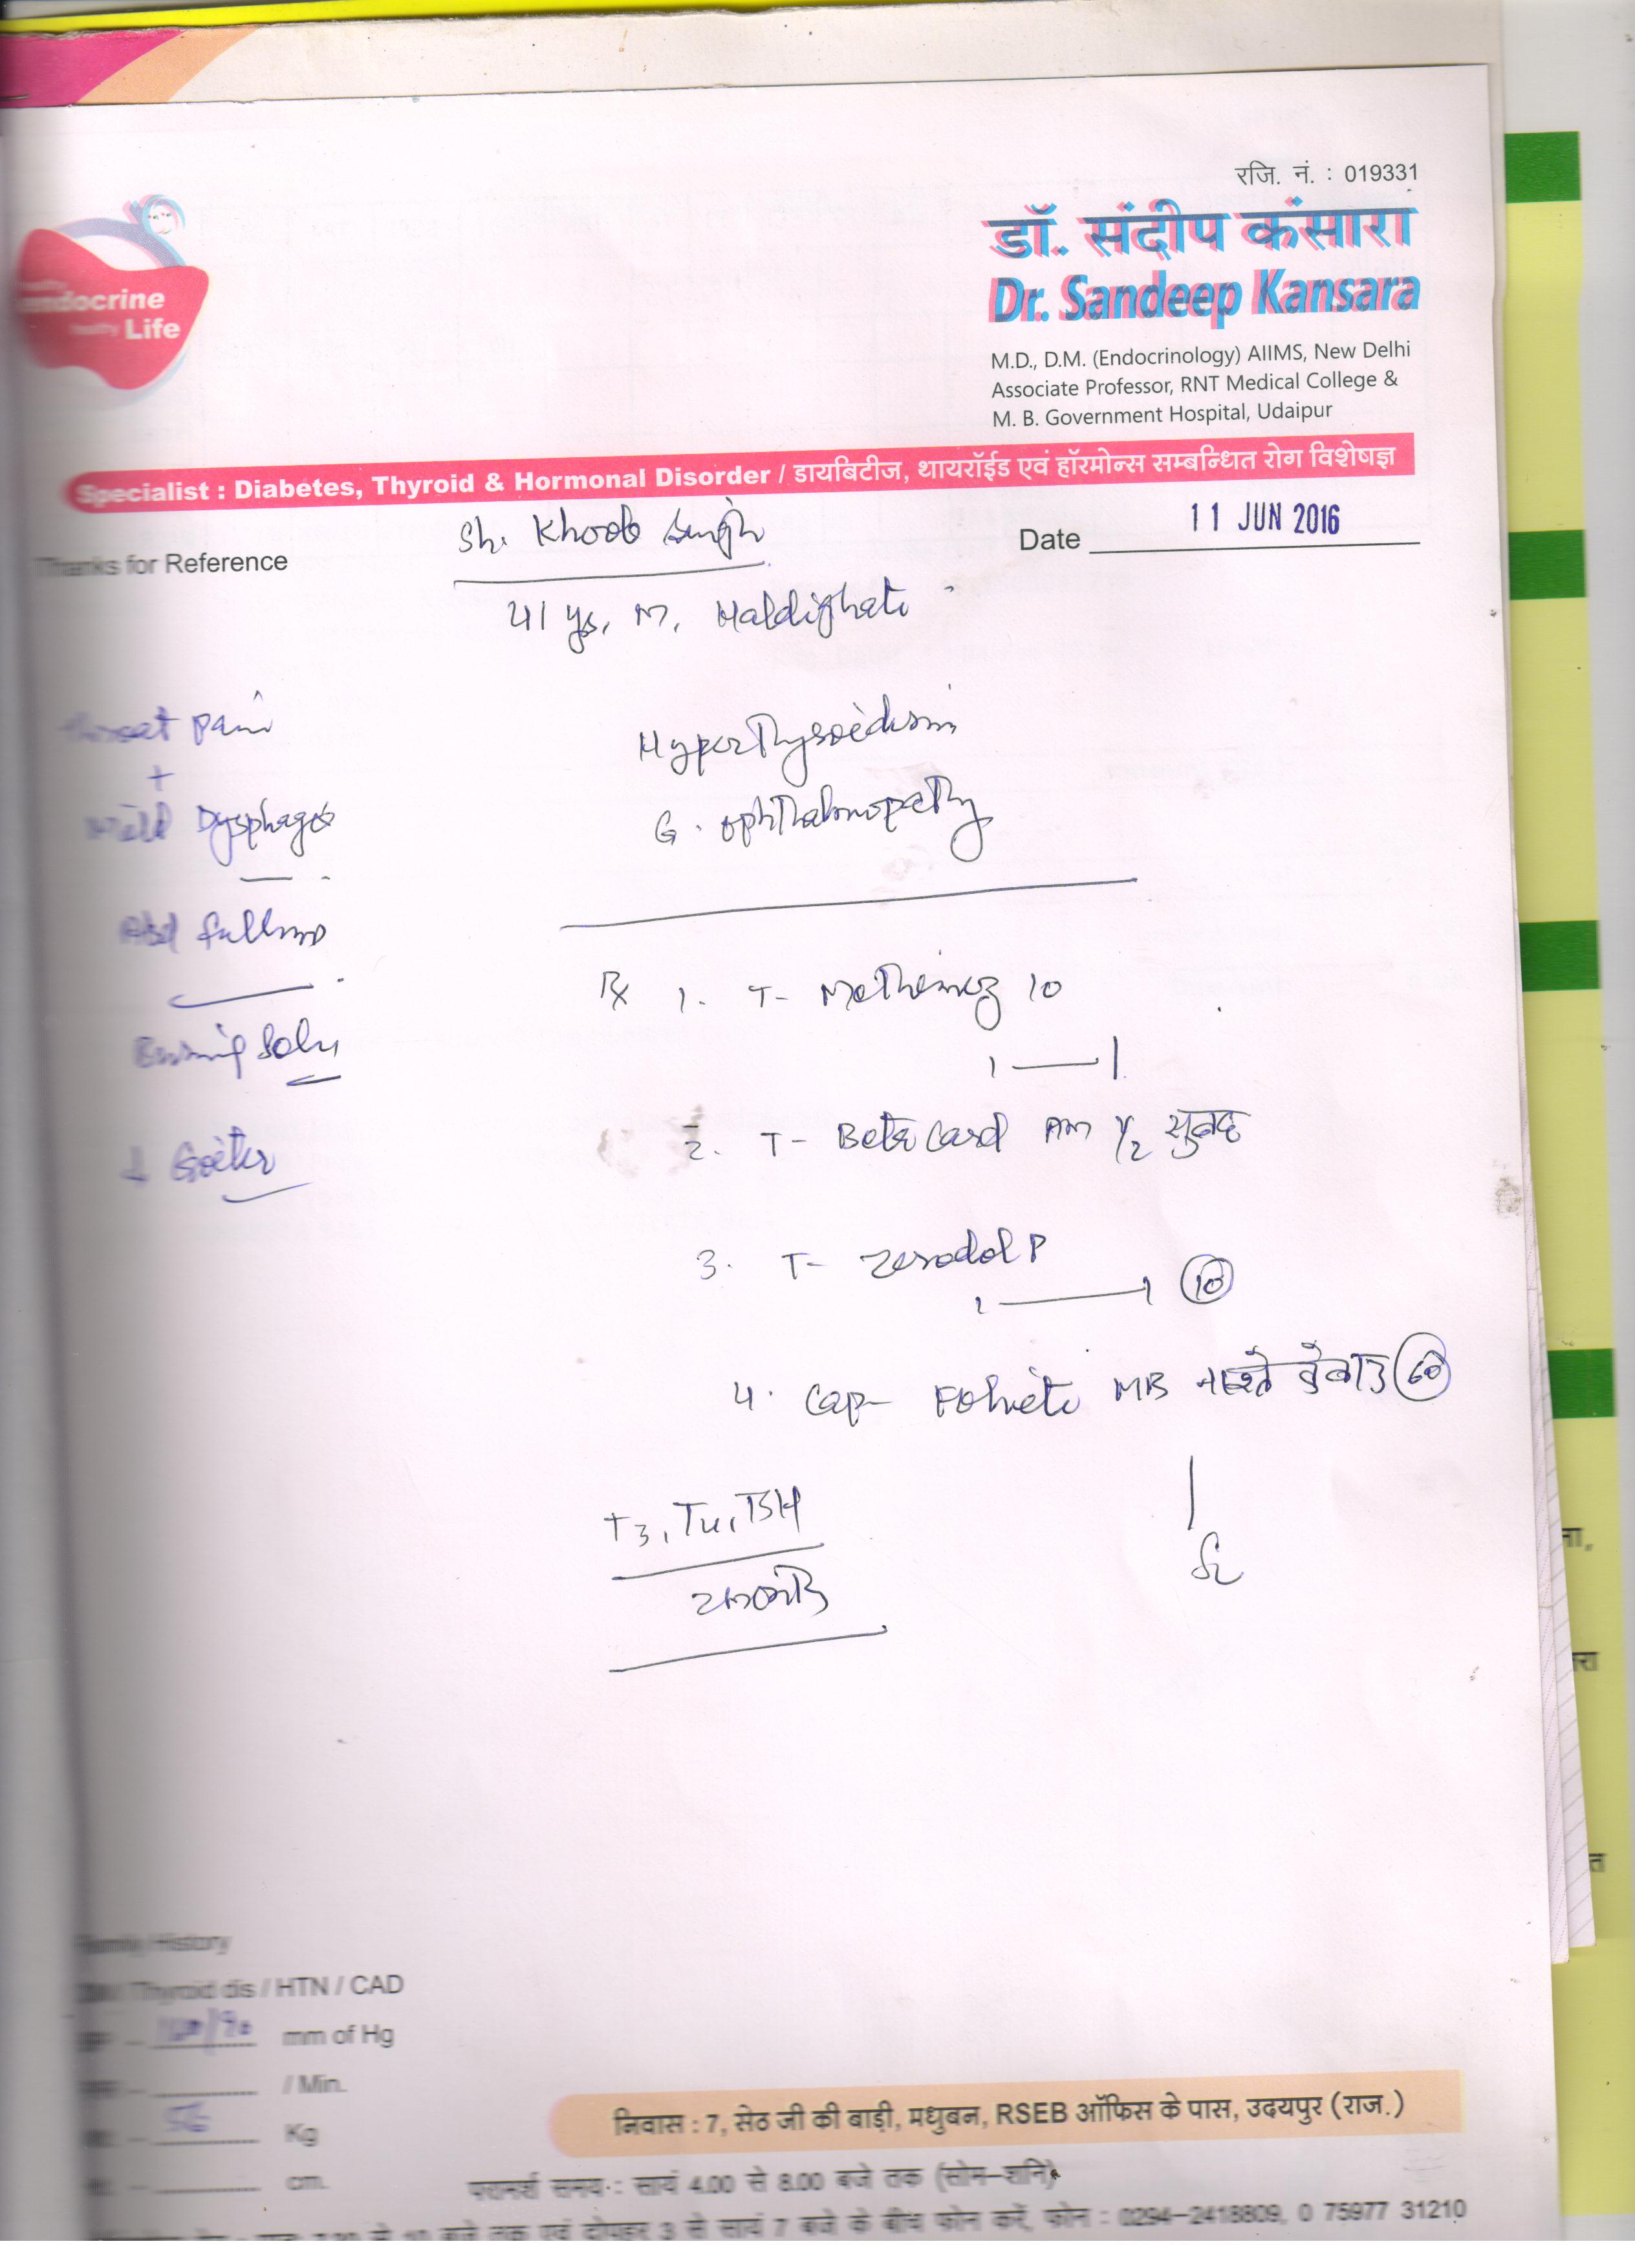 रजि. नं. : 019331
डॉ. संदीप कंसारा
Dr. Sandeep Kansara
M.D., D.M. (Endocrinology) AIIMS, New Delhi
Associate Professor, RNT Medical College &
M. B. Government Hospital, Udaipur
endocrine
Life
Specialist : Diabetes, Thyroid & Hormonal Disorder / डायबिटीज, थायरॉईड एवं हॉरमोन्स सम्बन्धित रोग विशेषज्ञ
Thanks for Reference
Sh. Khoob Singh
Date 11 JUN 2016
41 ys, M, Haldighati
throat pain
+
Mild Dysphagia
Abd fullness
Burning
+ Goiter
Hyperthyroidism
G. ophthalmopathy
Rx 1. T- Methimez 10
1 — 1
2. T- Betacard AM 1/2 सुबह
3. T- Zerodol P
1 — 1 10
4. Cap- MB 60
T3, T4, TSH
Family History
Thyroid dis / HTN / CAD
mm of Hg
/ Min.
56 Kg
cm.
निवास : 7, सेठ जी की बाड़ी, मधुबन, RSEB ऑफिस के पास, उदयपुर (राज.)
परामर्श समय : सायं 4.00 से 8.00 बजे तक (सोम-शनि)
बजे तक एवं दोपहर 3 से सायं 7 बजे के बीच फोन करें, फोन : 0294-2418809, 0 75977 31210